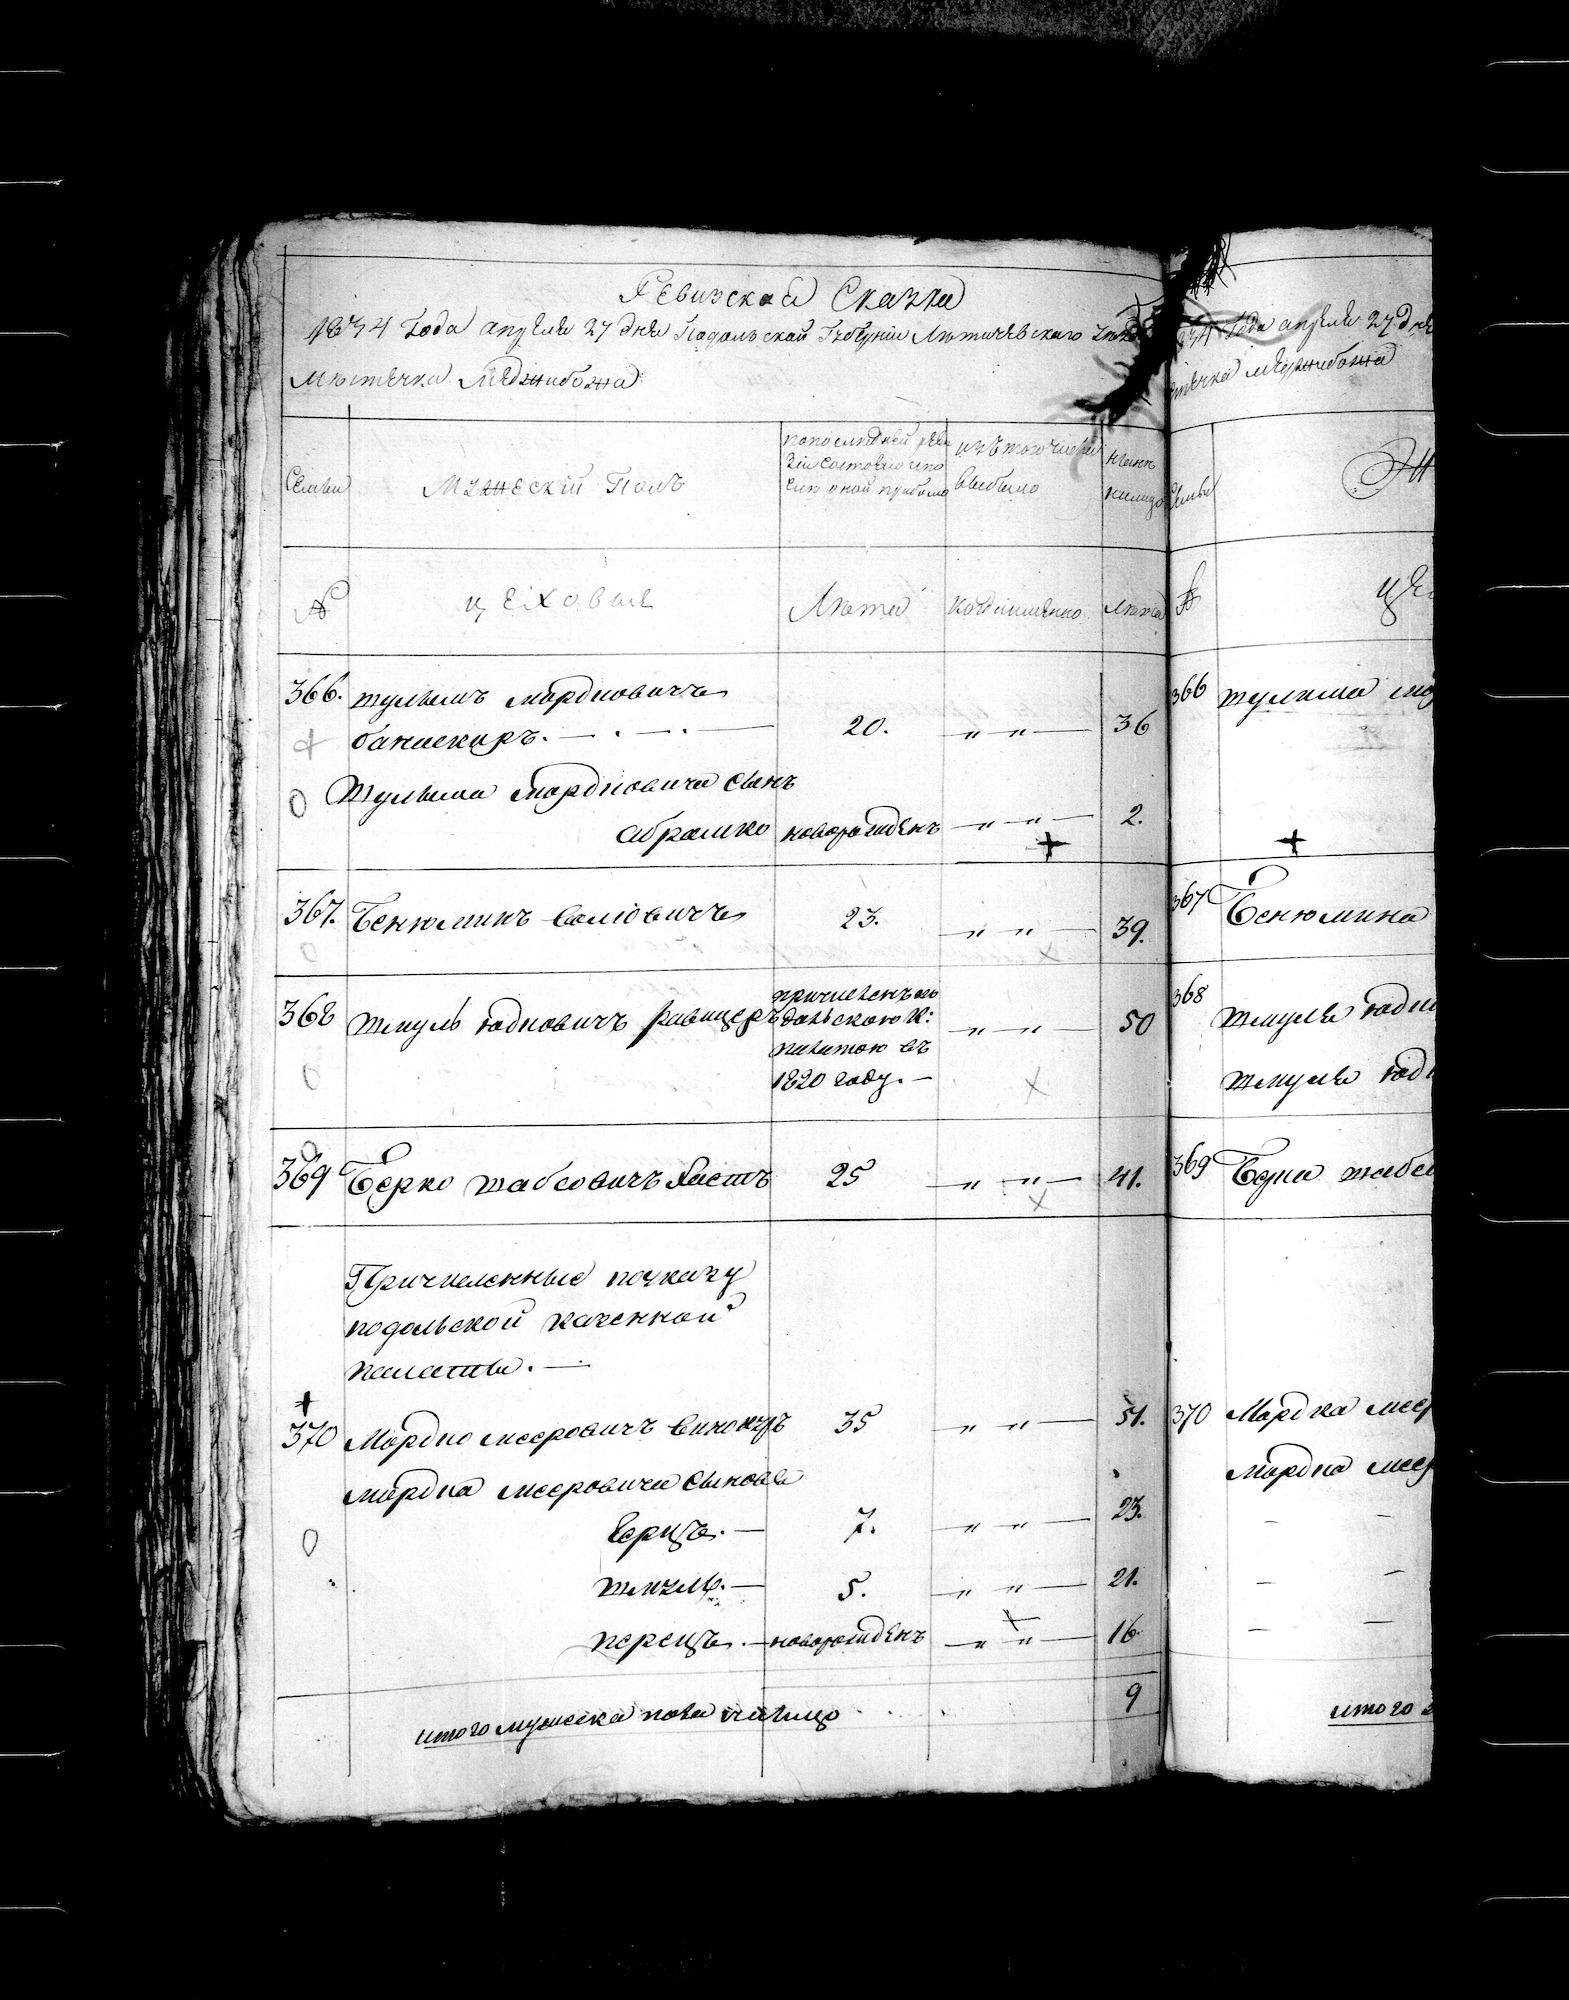 Ревизская Сказка
1834 Года апреля 27 дня Подольской Губернии Летичевского
Местечка Меджибожа
Семьи
Мужескій Полъ
по последней реви
зіи состояло и по
сле оной прибыло
изъ того числа
выбыло
ныне
налицо
№
цеховые
Лета
когда именно
Лета
366. шулымъ мордковичъ
банаскиръ. — . — . —
20.
" " —
36
Шулыма мордковича сынъ
абрамко
новорожденъ
— " " —
2.
367. Бенюминъ Волховичъ
23.
— " " —
39.
368 Шмуль юдковичъ равицеръ
причисленъ по
дольскою К:
палатою въ
1820 году. —
— " " —
50
369 Берко шабсовичъ Хастъ
25
— " " —
41.
Причисленные по указу
подольской казенной
палаты. —
370 Мордко мееровичъ Винокуръ
35
" " —
51.
мордка мееровича сыновья
Герцъ. —
7.
" " —
23.
шмуль. —
5.
" " —
21.
перецъ. —
новорожденъ
— " " —
16.
итого мужеска пола налицо
9
1834 Года апреля 27 дня
местечка меджибожа
Семьи
Же
№
це
366 шулыма мор
367 Бенюмина
368 шмуля юдко
шмуля юдк
369 Берка шабсо
370 Мордка меер
мордка меер
итого